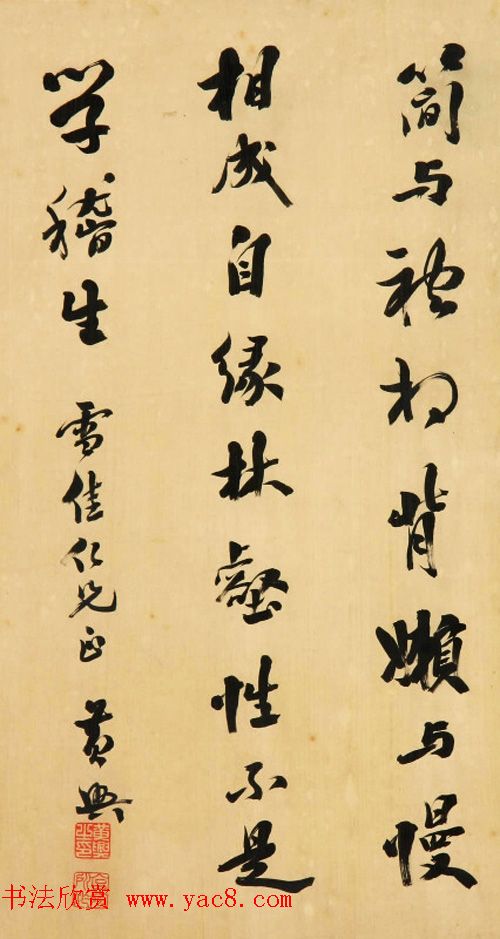 简与礼相背懒与慢
相成自缘林壑性不是
学嵇生
雪佳仁兄正 黄兴
黄兴之印
书法欣赏 www.yac8.com